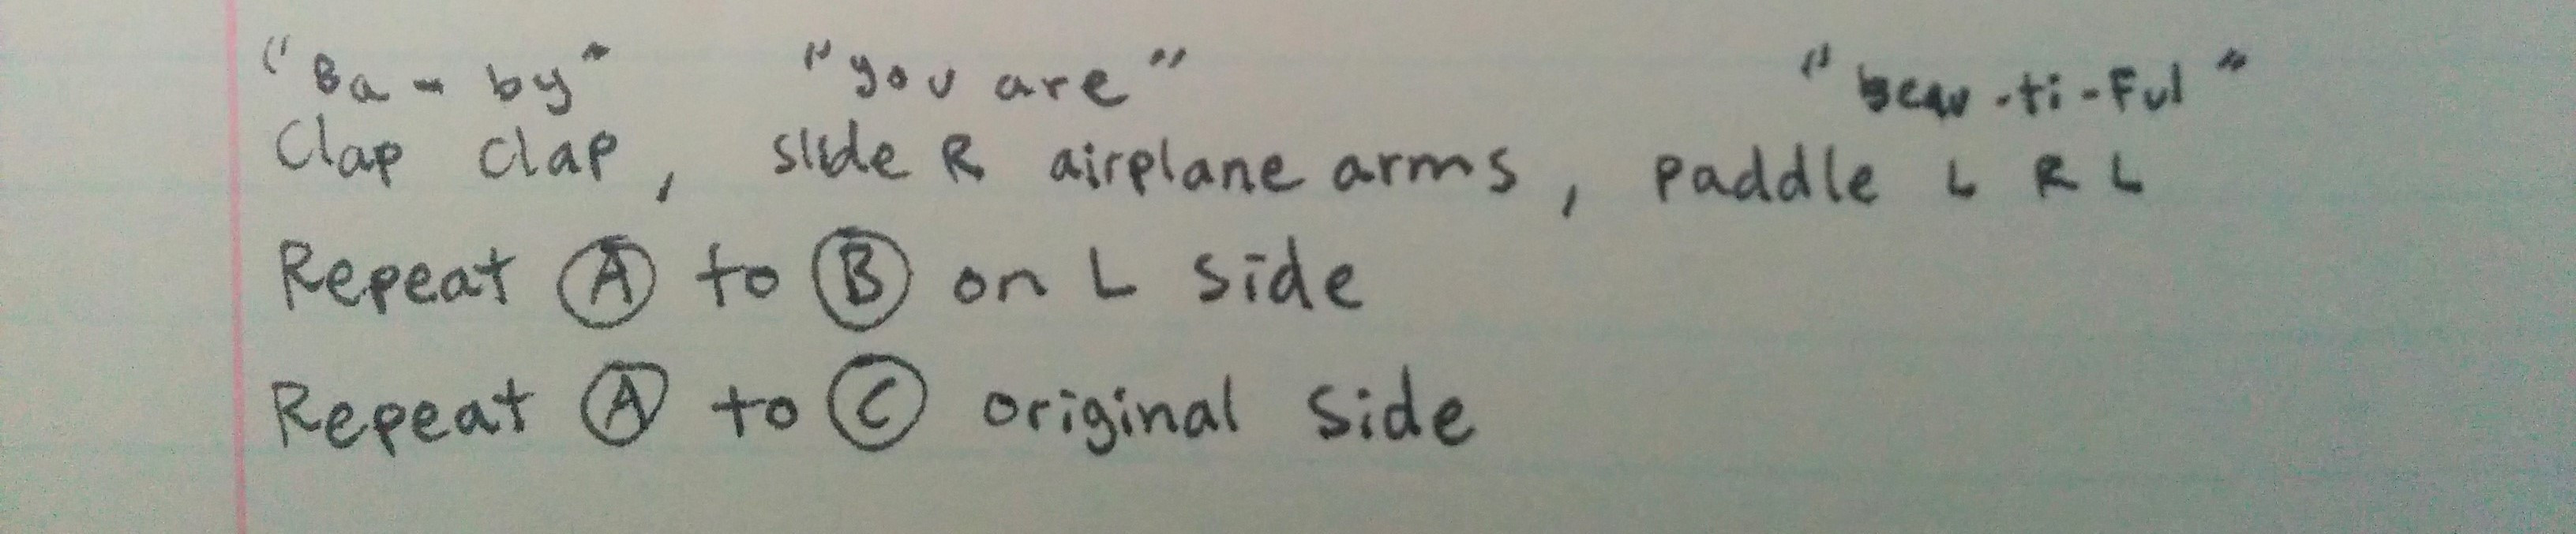 "Ba - by" "you are" "beau-ti-Ful"
Clap clap, slide R airplane arms, paddle L R L
Repeat Ⓐ to Ⓑ on L side
Repeat Ⓐ to Ⓒ original side